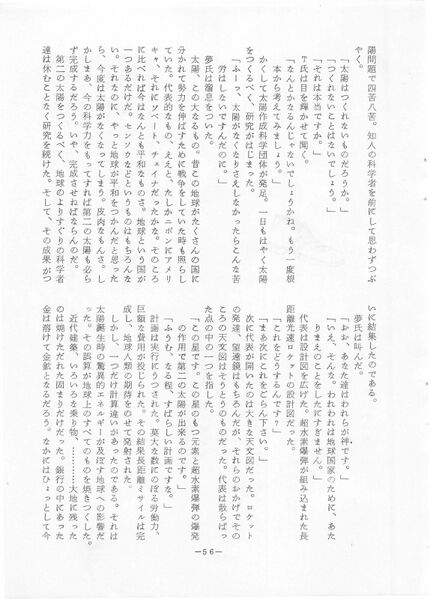 陽問題で四苦八苦。知人の科学者を前にして思わずつぶ
やく。
「太陽はつくれないものだろうか。」
「つくれないことはないでしょう。」
「それは本当ですか。」
T氏は目を輝かせて聞く。
「なんとかなるんじゃないでしょうかね。もう一度根
本から考えてみましょう。」
かくして太陽作成科学団体が発足。一日もはやく太陽
をつくるべく、研究がはじまった。
「ふーっ、太陽がなくなりさえしなかったらこんな苦
労はしないですんだのに。」
夢氏は溜息をついた。
太陽、この大いなるもの。昔この地球がたくさんの国に
分かれて勢力を伸ばすために戦争をしていた時も照らし
ていた。代表的なもので、ええと、たしかニッポンにアメリ
キャ、それにソベート、チェイナだったかな。そのころ
に比べれば今はなんとも平和なものさ。地球という国が
一つあるだけだ。センソウなどというものはもちろんな
い。それなのに、やっと地球が平和をつかんだと思った
ら、今度は太陽がなくなってしまう。皮肉なもんさ。し
かしまあ、今の科学力をもってすれば第二の太陽も必ら
ず完成するだろう。いや、完成させねばならんのだ。
第二の太陽をつくるべく、地球のよりすぐりの科学者
達は休むことなく研究を続けた。そして、その成果がつ
いに結集したのである。
夢氏は叫んだ。
「おお、あなた達はわれらが神です。」
「いえ、そんな。われわれは地球国家のために、あた
りまえのことをしたにすぎません。」
代表は設計図を広げた。超水素爆弾が組み込まれた長
距離光速ロケットの設計図だった。
「これをどうするんです？」
「まあ次にこれをごらん下さい。」
次に代表が開いたのは大きな天文図だった。ロケット
の発達、望遠鏡はもちろんだが、それらのおかげでその
ころの天文図はそりとうのものだった。代表は散らばっ
た点の中の一つを指した。
「この星です。この星のもつ元素と超水素爆弾の爆発
の作用で第二の太陽が出来るのです。」
「ふうむ、なる程、すばらしい計画ですな。」
計画は実行にうつされた。莫大な数にのぼる労働力、
巨額な費用が投じられた。その結果長距離ミサイルは完
成し、地球人類の期待をのせて発射された。
しかし、一つだけ計算違いがあったのである。それは
太陽誕生時の驚異的エネルギーが及ぼす地球への影響だ
った。その誤算が地球上のすべてのものを焼きつくした。
近代建築、いろいろな乗り物、…………大地に残った
のは焼けただれた固まりだけだった。銀行の中にあった
金は溶けて金鉱となるだろう。なかにはひょっとして今
―56―